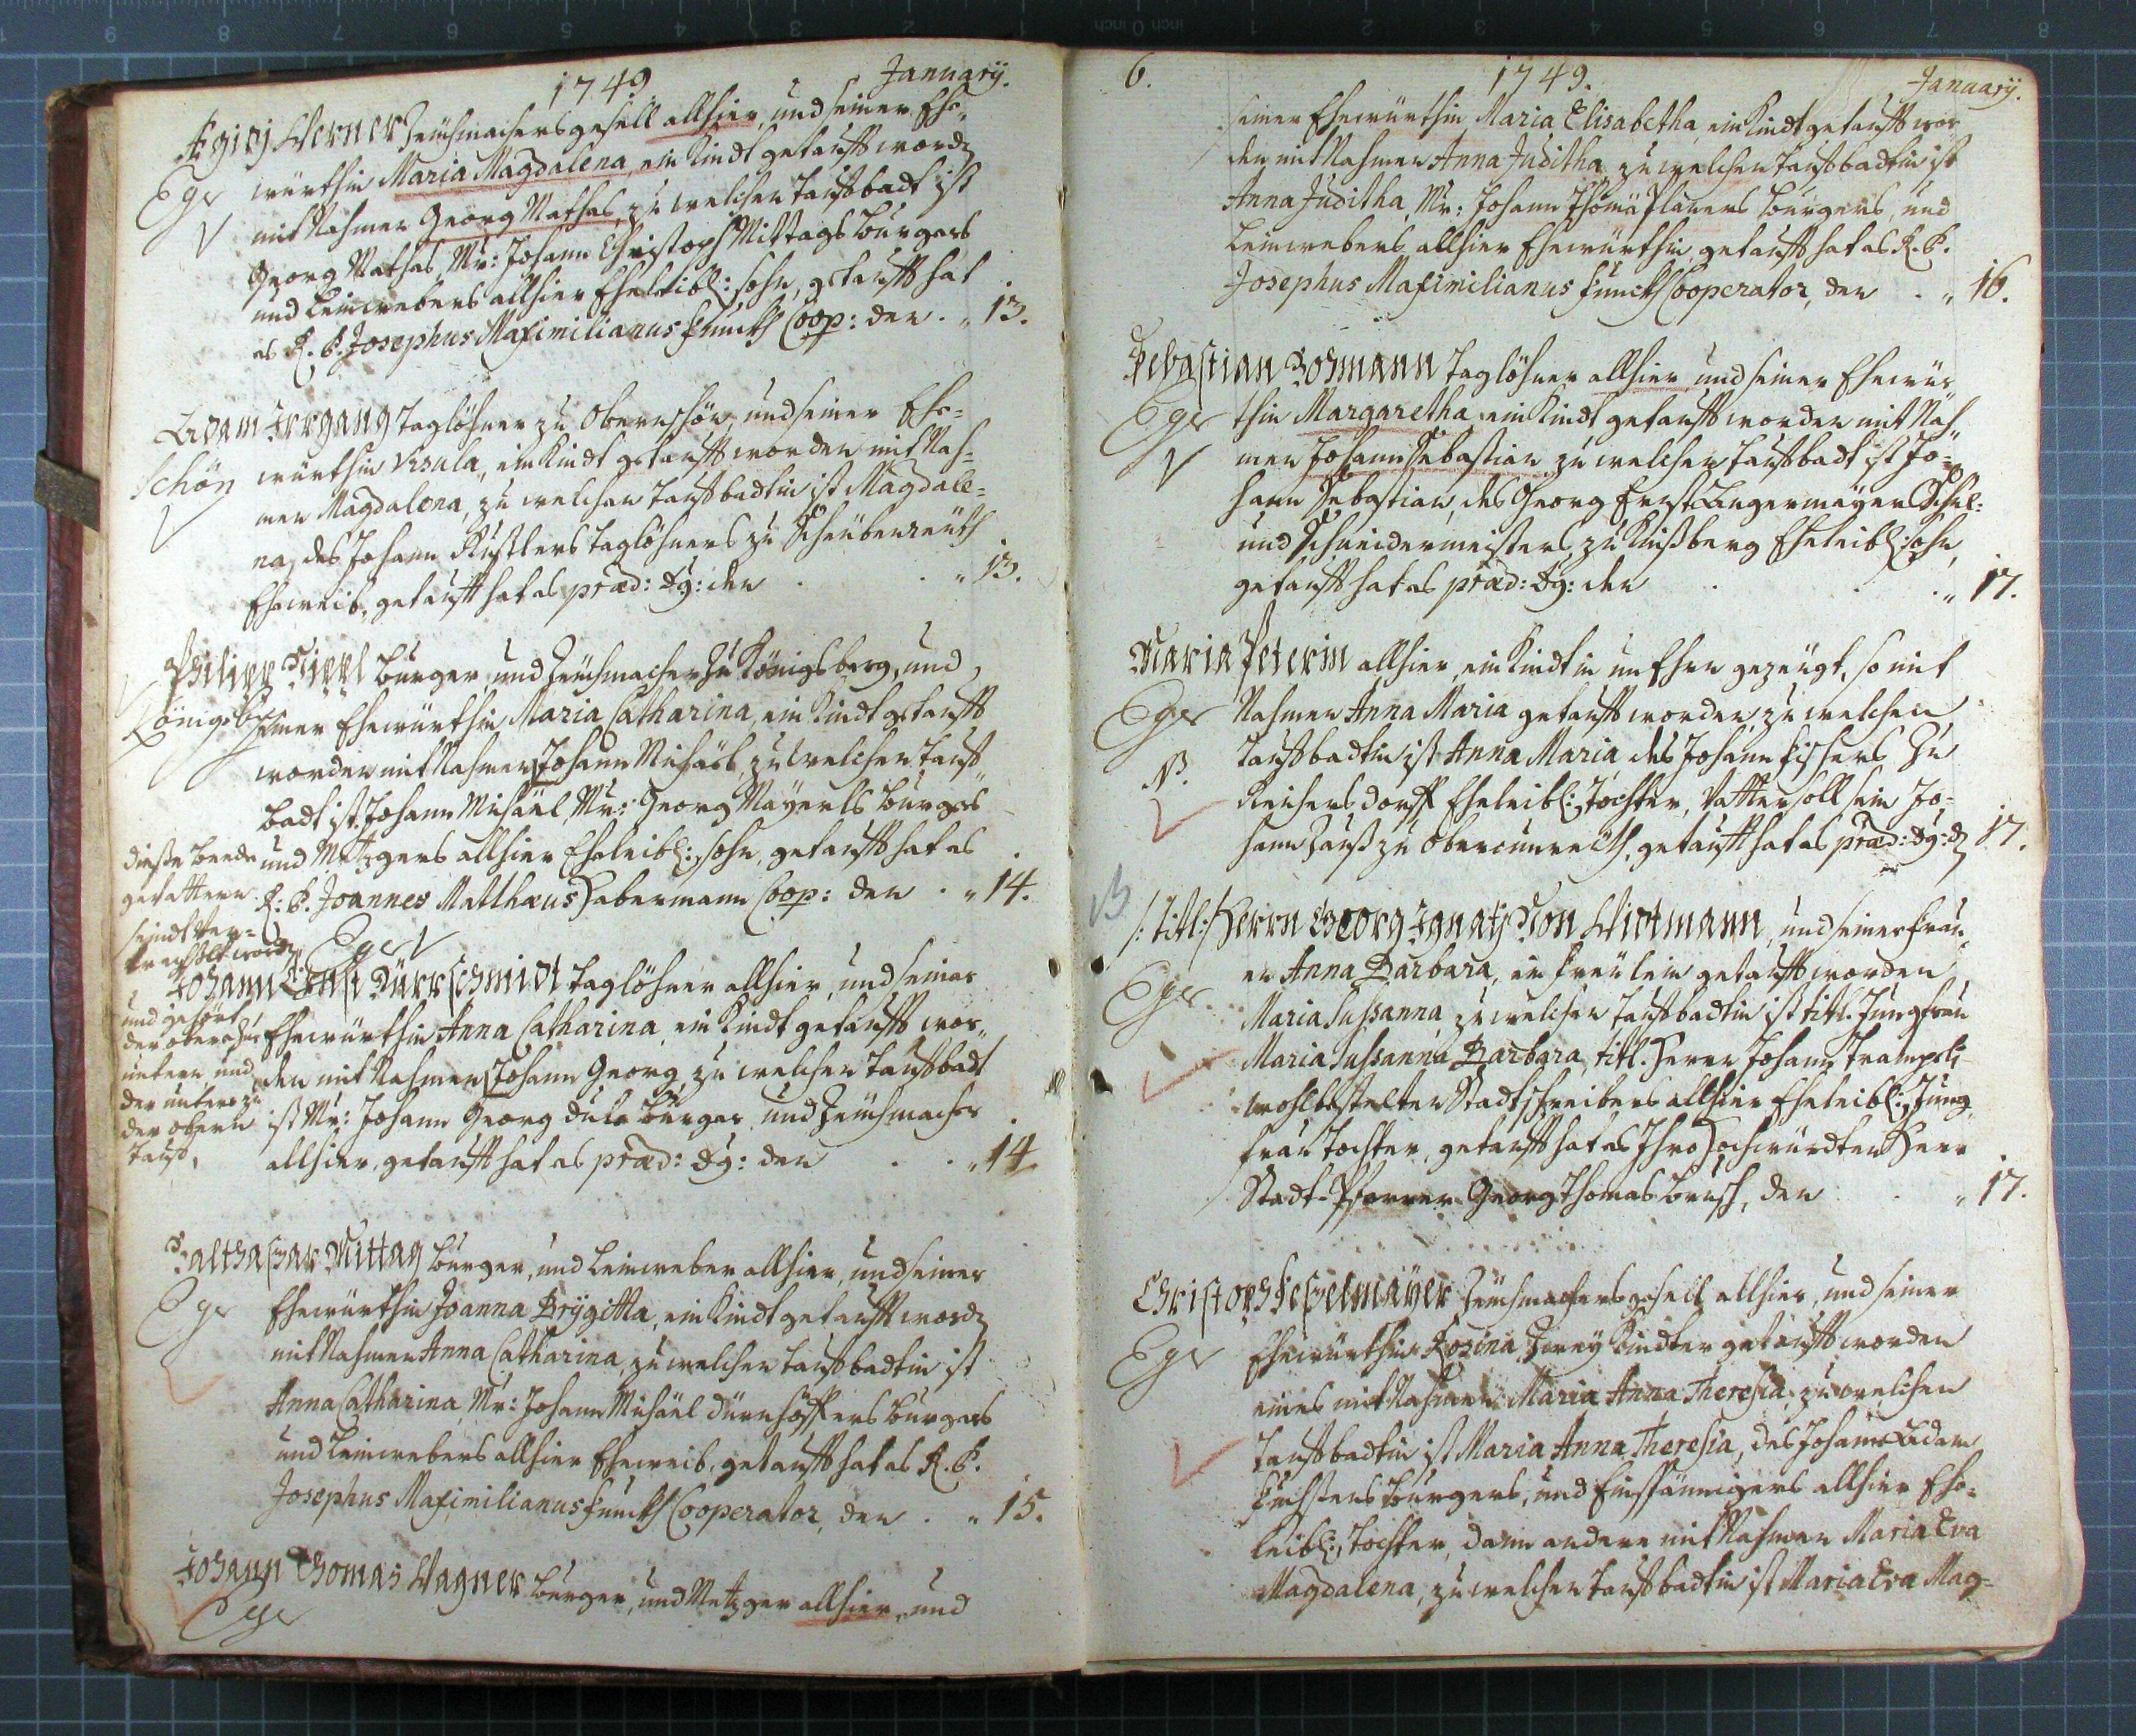 1749 January.
Egidj Werner Zeuchmachersgesell allhier, und seiner Ehe-
Eger würthin Maria Magdalena, ein Kindt getaufft wordn
mit Nahmen Georg Mathes, zu welchen Taufbadt ist
Georg Mathes, Mr: Johann Christoph Mittags Burgers
und Leinwebers allhier Eheleibl: Sohn, getaufft hat
es R. P. Josephus Maximilianus Funckh Coop: den . „ 13.
Adam Irrgang Taglöhner zu Obernschön, und seiner Ehe-
Schön würthin Ursula, ein Kindt getaufft worden mit Nah-
men Magdalena, zu welchen Taufbadtin ist Magdale-
na, des Johann Küstlers Taglöhners zu Scheubenreuth
Eheweib, getaufft hat es præd: Dg: den . . „ 13.
Philipp Burger, und Zeuchmacher zu Königsberg, und
Königsb. seiner Ehewürthin Maria Catharina, ein Kindt getaufft
worden mit Nahmen Johann Michäel, zu welchen Tauf-
badt ist Johann Michäel, Mr: Georg Mayerls Burgers
und Metzgers allhier Eheleibl: Sohn, getaufft hat es
R: P. Joannes Matthæus Habermann Coop: den . „ 14.
diese beede
gevattern
seindt ver-
wechslet wordn
und gehört
der obere zur
untern, und
der untere zu
der obern
Tauf.
Eger
Johann Ernst Dürrschmidt Taglöhner allhier, und seiner
Ehewürthin Anna Catharina, ein Kindt getaufft wor-
den mit Nahmen Johann Georg, zu welchen Taufbadt
ist Mr: Johann Georg Burger, und Zeuchmacher
allhier, getaufft hat es præd: Dg: den . . „ 14
Balthasar Mittag Burger, und Leinweber allhier, und seiner
Eger Ehewürthin Joanna Brygitta, ein Kindt getaufft wordn
mit Nahmen Anna Catharina, zu welchen Taufbadtin ist
Anna Catharina, Mr: Johann Michäel Dürnhöffers Burgers
und Leinwebers allhier Eheweib, getaufft hat es R. P.
Josephus Maximilianus Funckh Cooperator, den . „ 15.
Johann Thomas Wagner Burger, und Metzger allhier, und
Eger
6. 1749. January.
seiner Ehewürthin Maria Elisabetha, ein Kindt getaufft wor-
den mit Nahmen Anna Juditha, zu welchen Taufbadtin ist
Anna Juditha, Mr: Johann Thomä Planers Burgers, und
Leinwebers allhier Ehewürthin, getaufft hat es R. P.
Josephus Maximilianus Funckh Cooperator, den . „ 16.
Sebastian Taglöhner allhier, und seiner Ehewür-
Eger thin Margaretha, ein Kindt getaufft worden mit Nah-
men Johann Sebastian, zu welchen Taufbadt ist Jo-
hann Sebastian, des Georg Ernst Angermayer Schul-
und Schneidermeisters, zu Kinßberg Eheleibl: Sohn,
getaufft hat es præd: Dg: den . . . „ 17.
Maria Peterin allhier, ein Kindt in un Ehren gezeugt, so mit
Eger Nahmen Anna Maria getaufft worden, zu welchen
N. Taufbadtin ist Anna Maria des Johann Fischers zu
Reichersdorff Eheleibl: Tochter, Vatter soll sein Jo-
hann zu Obercunreuth, getaufft hat es præd: Dg: d. 17.
/: Titl: / Herrn Georg Ignatj Von Widtmann, und seiner Frau-
Eger en Anna Barbara, ein Freulein getaufft worden
Maria Sussanna, zu welchen Taufbadtin ist titl. Jungfrau
Maria Sussanna Barbara, titl. Herrn Johann Trampeli
wohlbestelten Stadtschreibers allhier Eheleibl: Jung-
frau Tochter, getaufft hat es Ihro Hochwürdten Herr
Stadt-Pfarrer Georg Thomas Brusch, den . „ 17.
Christoph Zeuchmachersgesell allhier, und seiner
Eger Ehewürthin Rosina, Zwey Kindter getaufft worden
eines mit Nahmen Maria Anna Theresia, zu welchen
Taufbadtin ist Maria Anna Theresia, des Johann Adam
Burgers, und Einspännigers allhier Ehe-
leibl: Tochter, dann andere mit Nahmen Maria Eva
Magdalena, zu welchen Taufbadtin ist Maria Eva Mag-